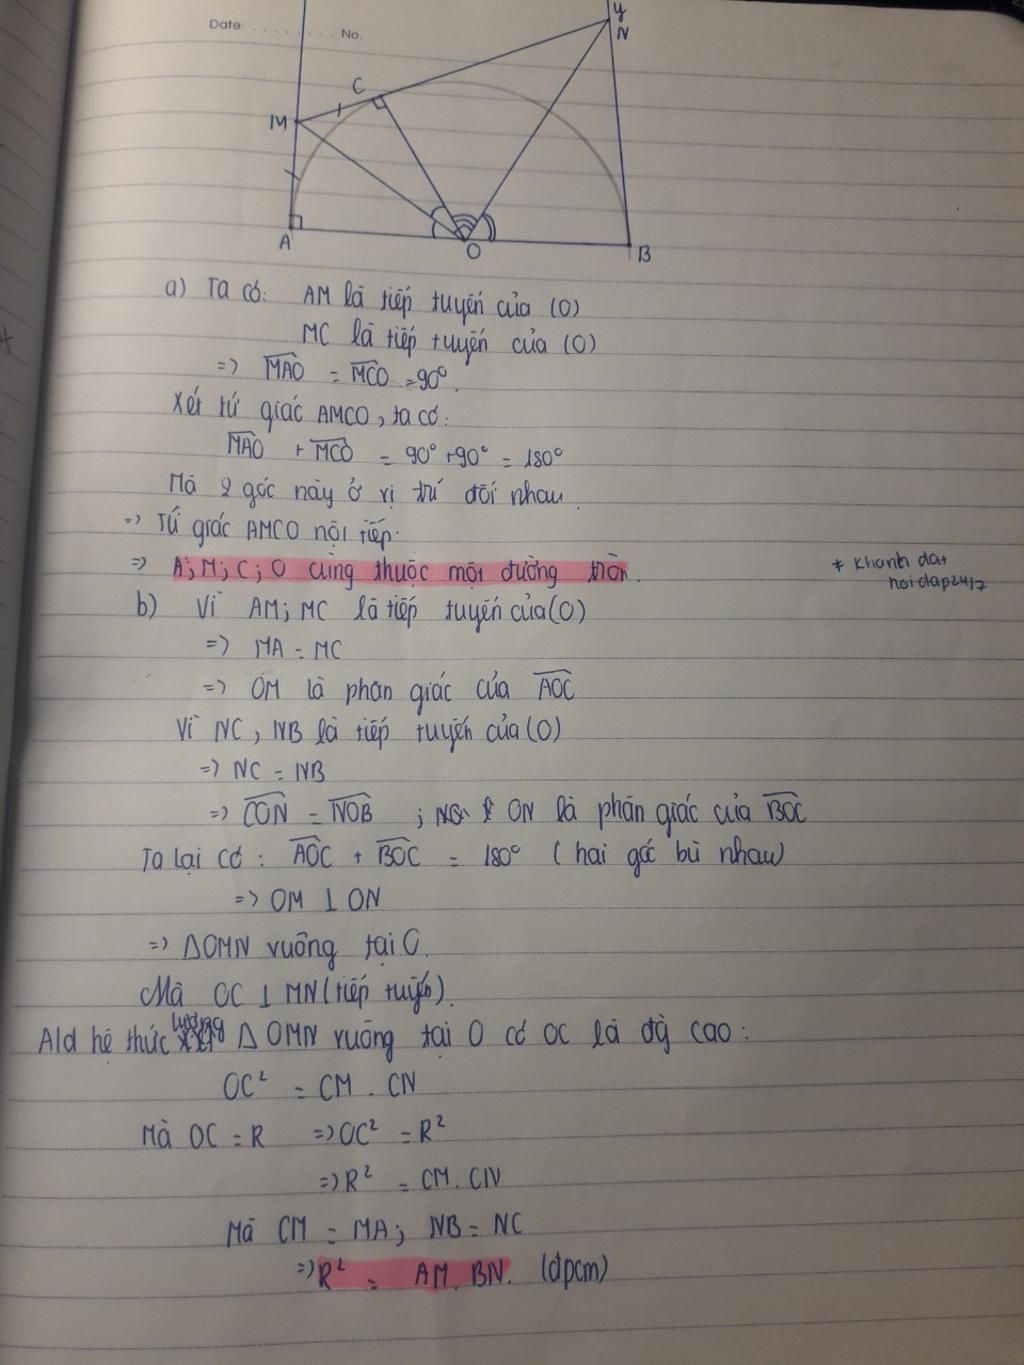 Date: ......... No.
y
N
C
M
A
O
B
a) Ta có: AM là tiếp tuyến của (O)
MC là tiếp tuyến của (O)
=> MAO = MCO = 90°.
Xét tứ giác AMCO, ta có:
MAO + MCO = 90° + 90° = 180°
Mà 2 góc này ở vị trí đối nhau.
=> Tứ giác AMCO nội tiếp.
=> A; M; C; O cùng thuộc một đường tròn.
* Khanh dat
hoidap247
b) Vì AM; MC là tiếp tuyến của (O)
=> MA = MC
=> OM là phân giác của AOC
Vì NC, NB là tiếp tuyến của (O)
=> NC = NB
=> CON = NOB ; ON là phân giác của BOC
Ta lại có: AOC + BOC = 180° (hai góc bù nhau)
=> OM ⊥ ON
=> ΔOMN vuông tại O.
Mà OC ⊥ MN (tiếp tuyến).
Ald hệ thức lượng Δ OMN vuông tại O có OC là đg cao:
OC² = CM . CN
Mà OC = R => OC² = R²
=> R² = CM. CN
Mà CM = MA; NB = NC
=> R² = AM. BN. (đpcm)